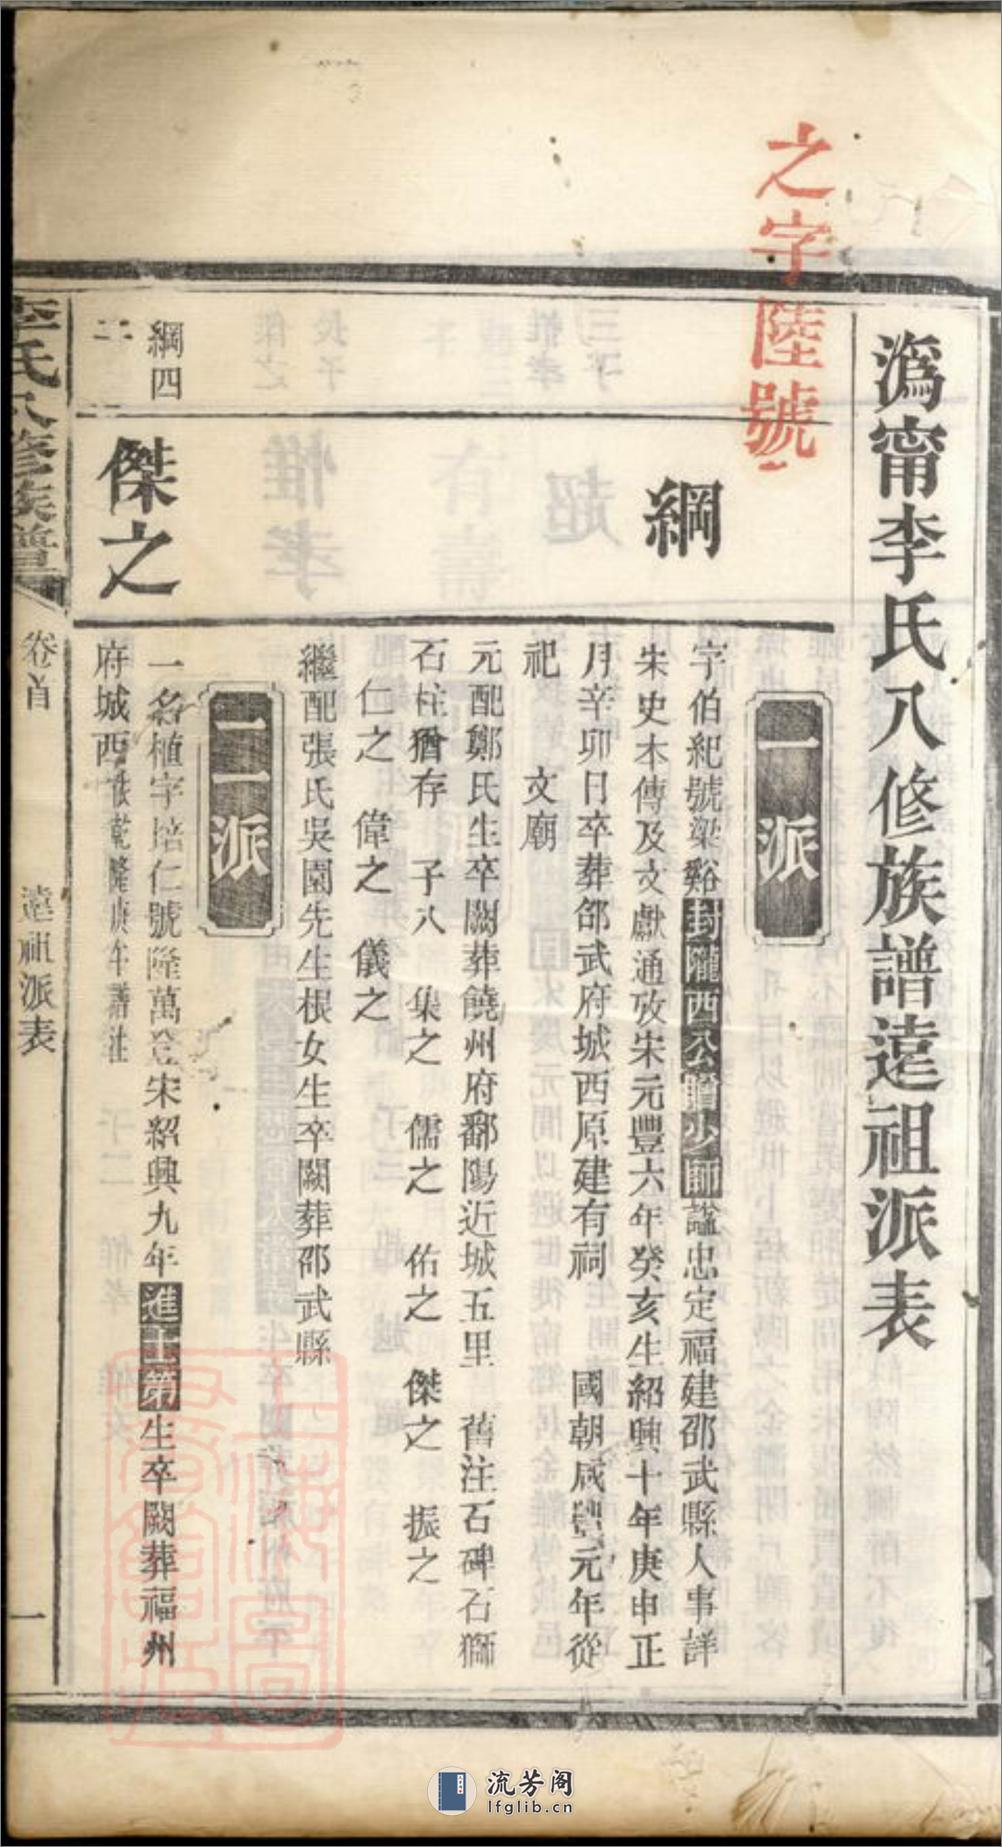 之字陸號
溈甯李氏八修族譜遠祖派表
一派
綱
字伯紀號梁谿封隴西公贈少師諡忠定福建邵武縣人事詳
朱史本傳及文獻通攷宋元豐六年癸亥生紹興十年庚申正
月辛卯日卒葬邵武府城西原建有祠 國朝咸豐元年從
祀 文廟
元配鄭氏生卒闕葬饒州府鄱陽近城五里 舊注石碑石獅
石柱猶存 子八 集之 儒之 佑之 傑之 振之
仁之 偉之 儀之
繼配張氏吳園先生根女生卒闕葬邵武縣
二派
綱四
子
傑之
一名植字培仁號隆萬登宋紹興九年進士第生卒闕葬福州
府城西 乾隆庚午譜注
李氏八修族譜
卷首
遠祖派表
一
流芳阁
lfglib.cn